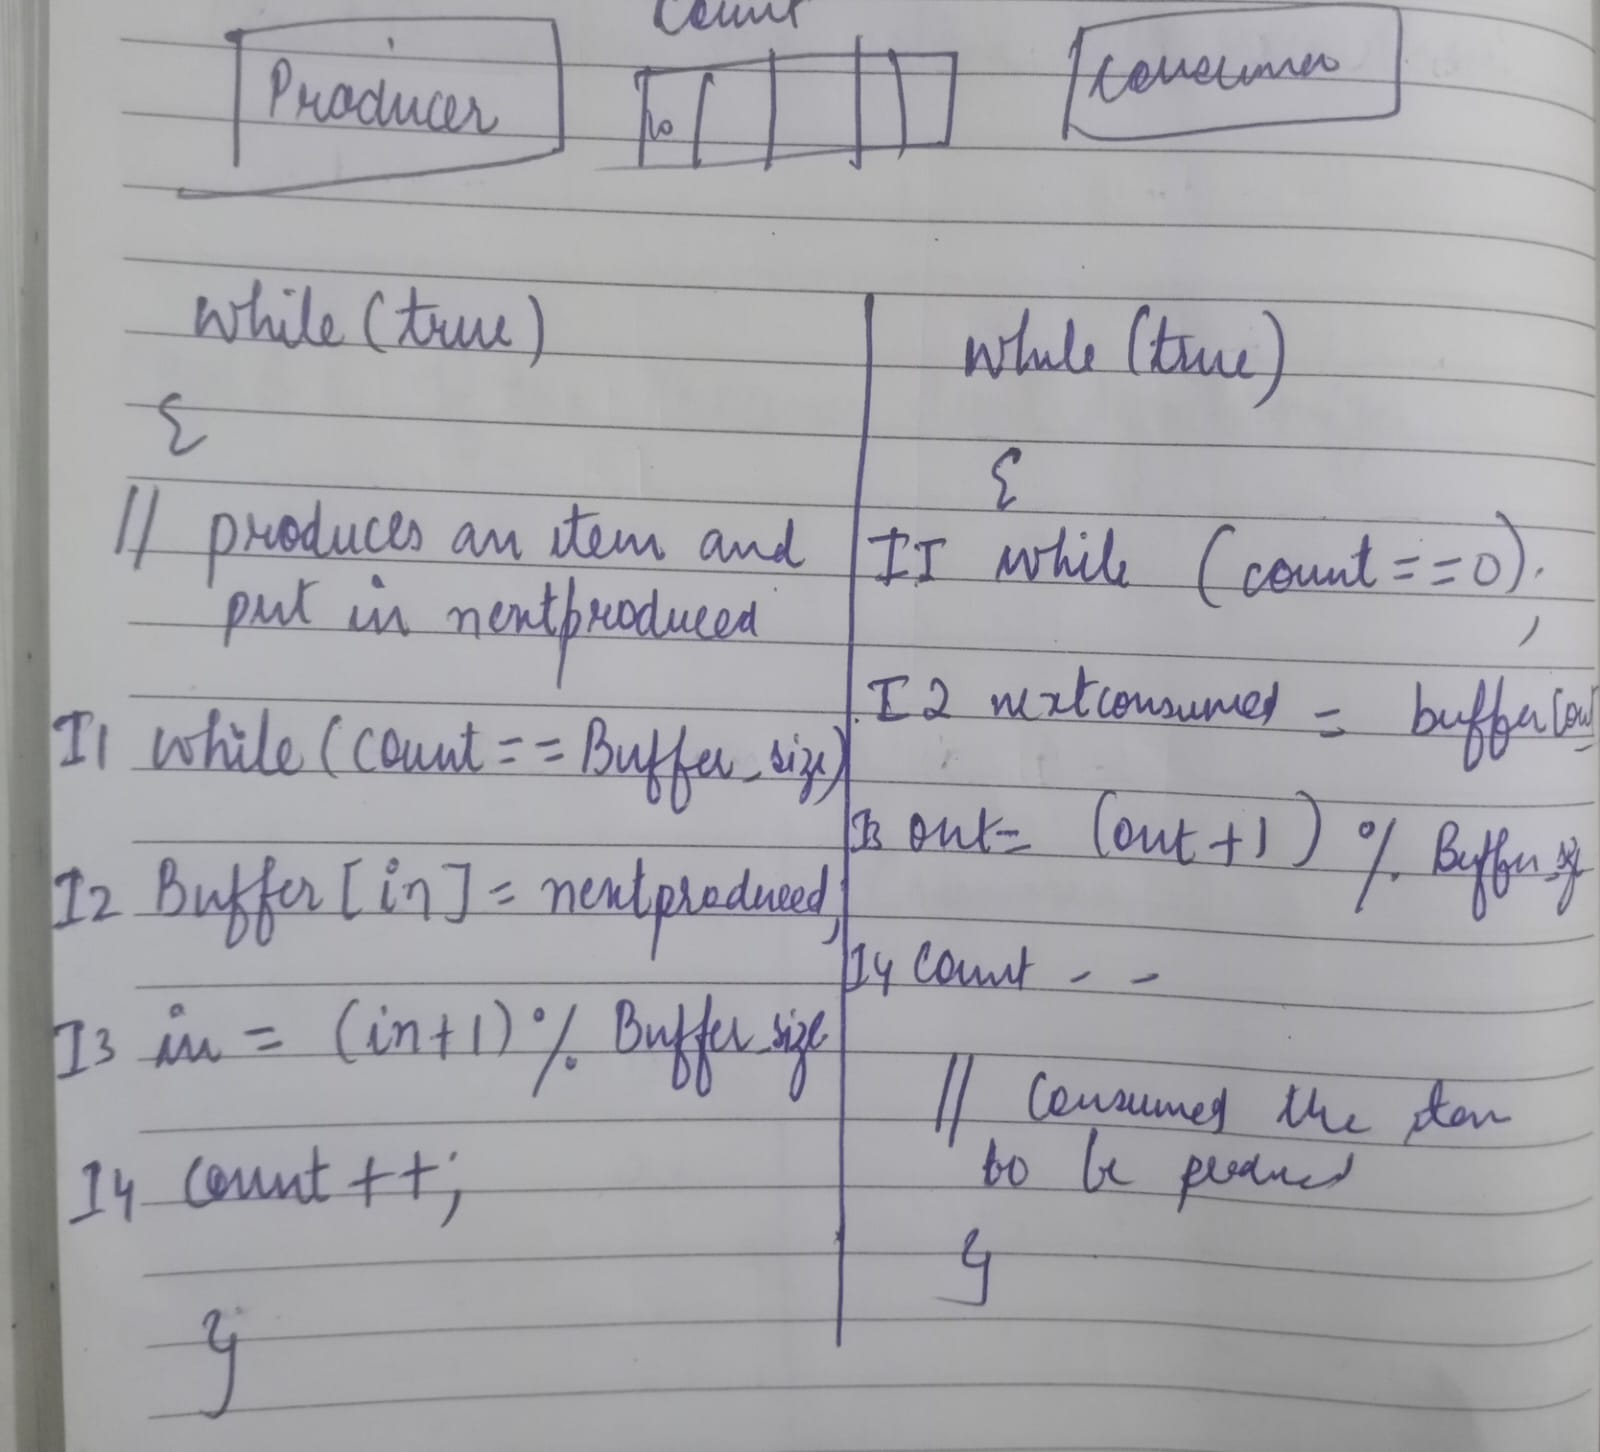 Count
Producer
Consumer
while (true)
{
// produces an item and
put in nextproduced
I1 while (count == Buffer_size)
I2 Buffer [in] = nextproduced;
I3 in = (in+1) % Buffer_size
I4 count ++;
}
while (true)
{
I1 while (count == 0);
I2 nextconsumed = buffer[out
I3 out = (out +1) % Buffer_size
I4 Count - -
// Consumed the item
to be
}